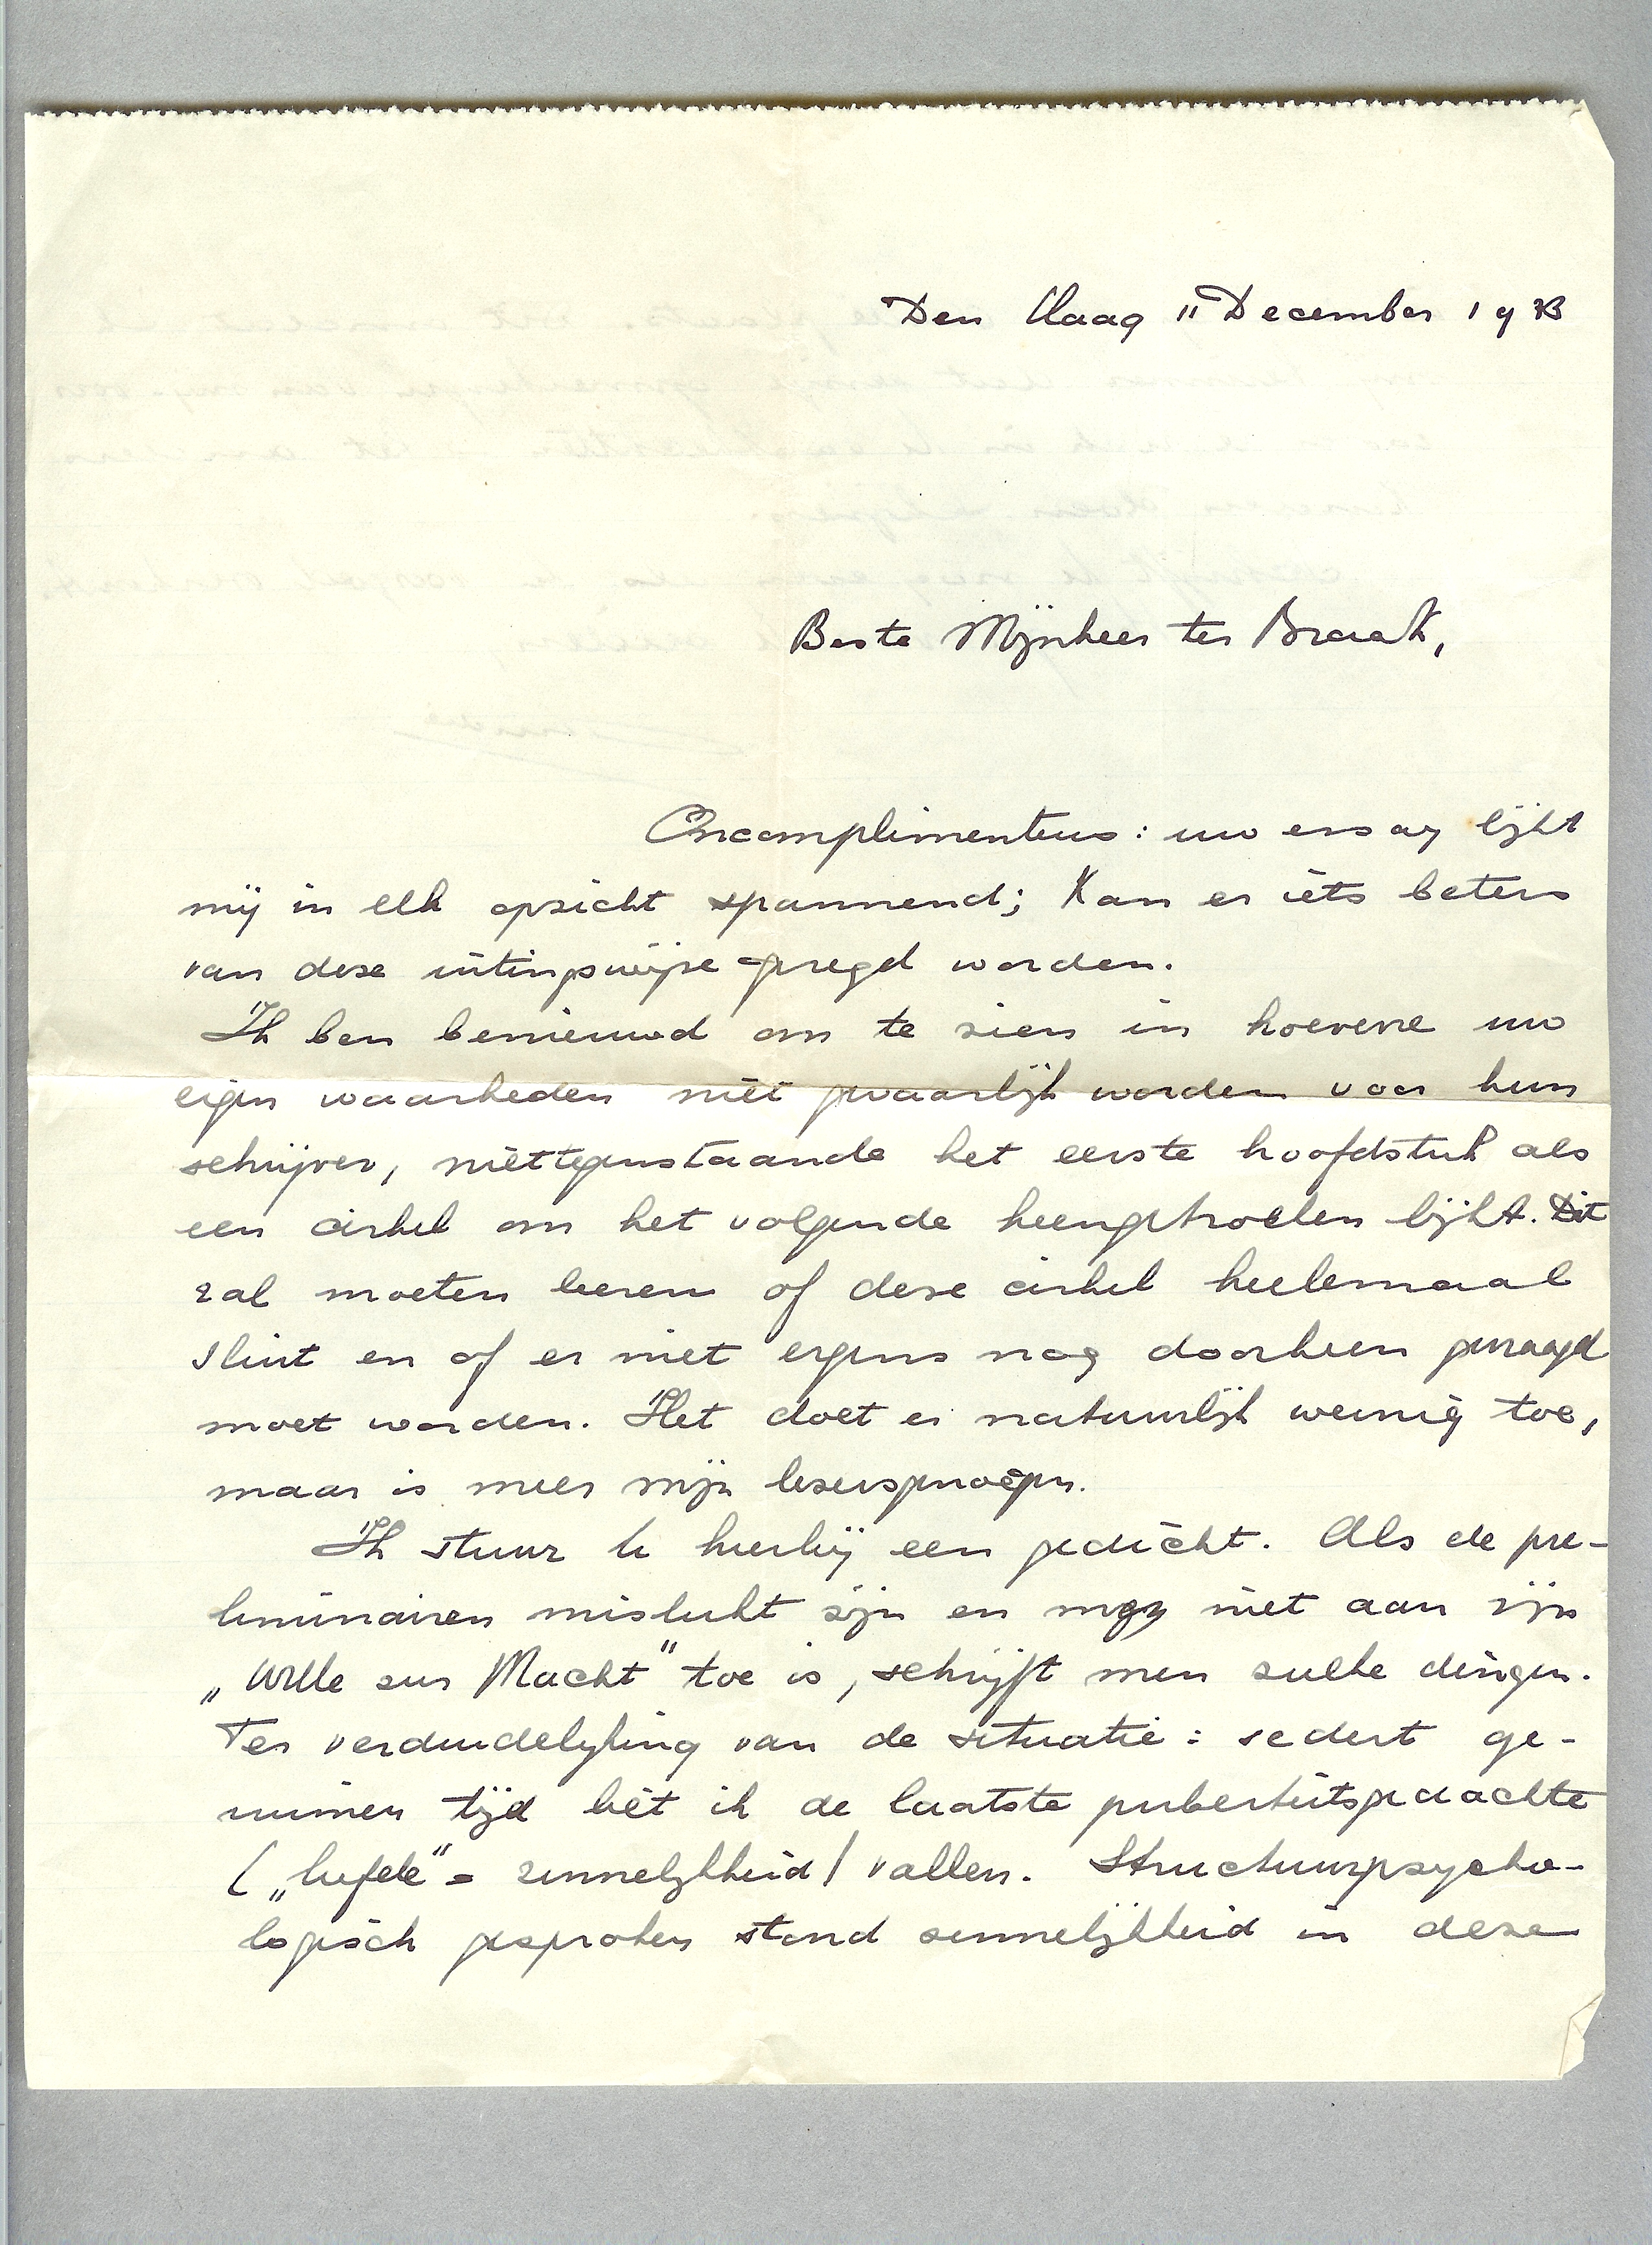 Den Haag 11 December 1933
Beste Mijnheer ter Braak,
Oncomplimenteus: uw essay lijkt
mij in elk opzicht spannend; kan er iets beters
van deze uitingswijze gezegd worden.
Ik ben benieuwd om te zien in hoeverre uw
eigen waarheden niet gevaarlijk worden voor hun
schrijver, niettegenstaande het eerste hoofdstuk als
een cirkel om het volgende heengetrokken lijkt. Dit
zal moeten leeren of deze cirkel heelemaal
sluit en of er niet ergens nog doorheen gezaagd
moet worden. Het doet er natuurlijk weinig toe,
maar is meer mijn lezersgenoegen.
Ik stuur U hierbij een gedicht. Als de pre-
liminairen mislukt zijn en men niet aan zijn
„Wille zur Macht" toe is, schrijft men zulke dingen.
Ter verduidelijking van de situatie: sedert ge-
ruimen tijd liet ik de laatste puberteitsgedachte
(„liefde" = zinnelijkheid) vallen. Structuurpsycho-
logisch gesproken stond zinnelijkheid in deze